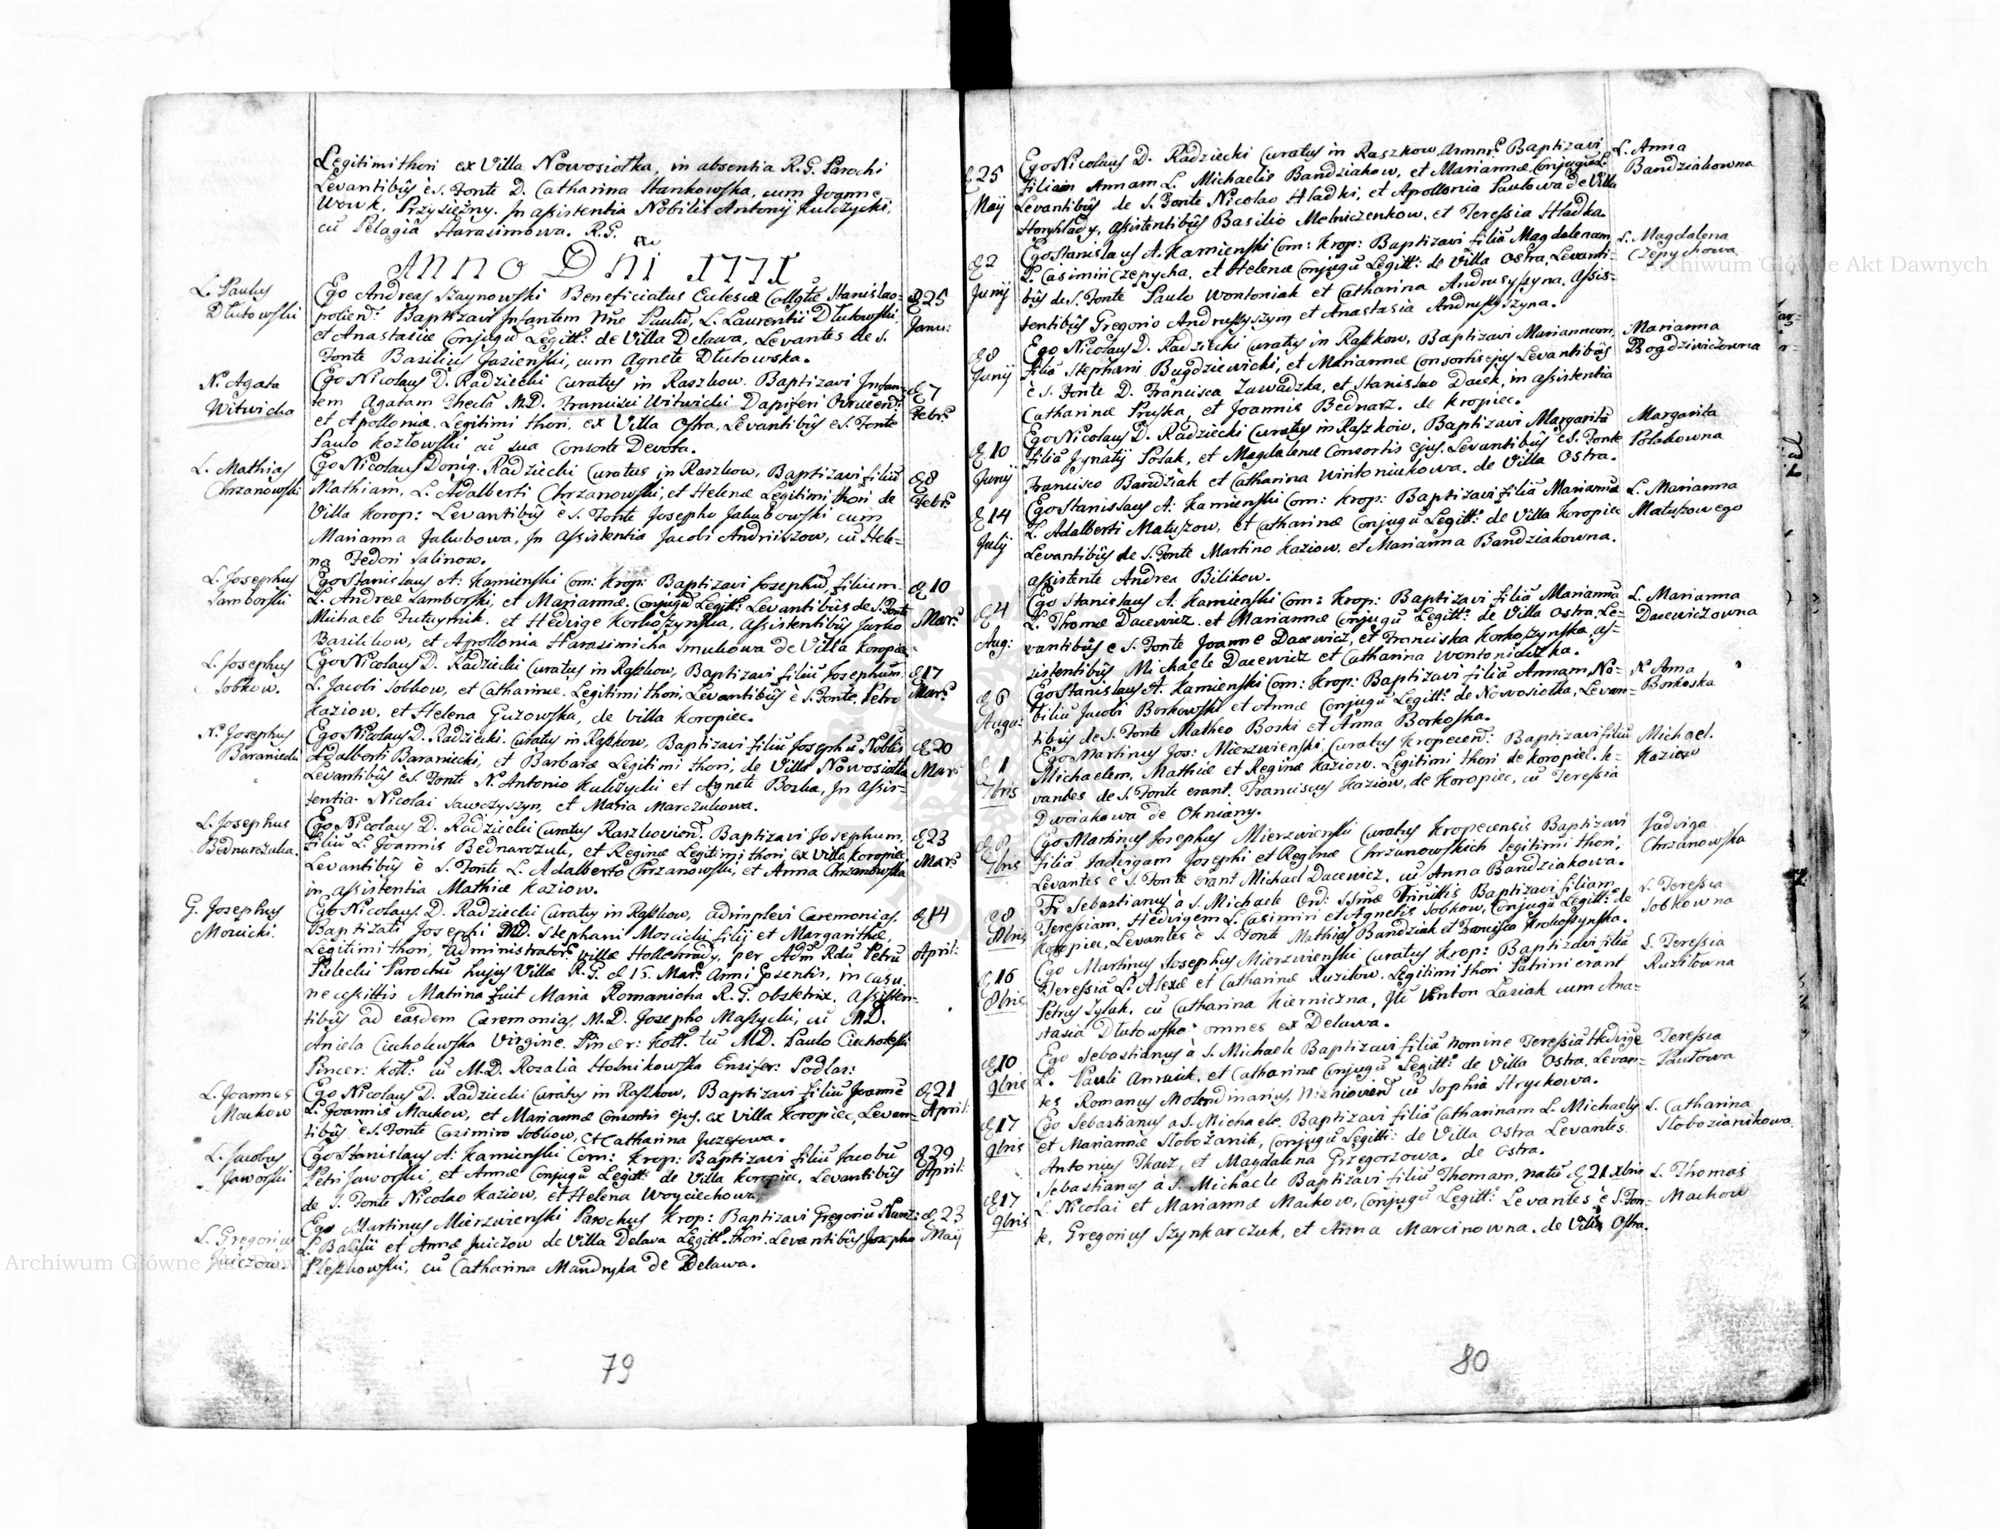 Legitimi thori ex Villa Nowosiołka, in absentia R.G. Parochi
Levantibûs è S. Fonte D. Catharina Stankowska, cum Joanne
Wowk, Przysiężny. In assistentia Nobilis Antonij Kulczycki,
cu Pelagia Harasimowa. R.G.
ANNO DNI 1771
L. Paulus
Dłutowski
Ego Andreas Szaynowski Beneficiatus Eclesiæ Collgtæ Stanislao-
poliens: Baptizavi Infantem Nne Paulu, L. Laurentii Dłutowski
et Anastasiæ Conjugu Legitt: de Villa Delawa, Levantes de S.
Fonte Basilius Jasienski, cum Agnete Dłutowska.
d 25
Janu:
N. Agata
Witwicka
Ego Nicolaus D. Radziecki Curatus in Raszkow. Baptizavi Infan-
tem Agatam Theclā M.D. Francisci Witwicki Dapiferi Ovrucens:
et Apolloniæ. Legitimi thori, ex Villa Ostra, Levantibûs è S. Fonte
Paulo Kozłowski cu sua Consorte Devota.
d 7
Febr:
L. Mathias
Chrzanowski
Ego Nicolaus Doniq: Radziecki Curatus in Raszkow, Baptizavi filiu
Mathiam, L. Adalberti Chrzanowski, et Helenæ Legitimi thori de
Villa Korop: Levantibûs è S. Fonte Josepho Jakubowski cum
Marianna Jakubowa, In assistentia Jacobi Andriiszow, cu Hele-
na Fedori Salinow.
d 8
Febr:
L. Josephus
Samborski
Ego Stanislaus A: Kamienski Com: Krop: Baptizavi Josephu, filium
L. Andreæ Samborski, et Mariannæ. Conjugu Legitt: Levantibûs de S. Fonte
Michaele Putaymik. et Hedvige Korkoszynska, Assistentibûs Jurko
Basilikow, et Apollonia Harasimicha Smukowa de Villa Koropiec.
d 10
Mar:
L. Josephus
Sobkow.
Ego Nicolaus D. Radziecki Curatus in Raszkow, Baptizavi filiu Josephum
L. Jacobi Sobkow, et Catharinæ. Legitimi thori, Levantibûs è S. Fonte. Petro
Kaziow. et Helena Guzowska, de Villa Koropiec.
d 17
Mar:
N. Josephus
Baraniecki
Ego Nicolaus D. Radziecki. Curatus in Raszkow, Baptizavi filiu Josephu Nobilis
Adalberti Baraniecki, et Barbaræ Legitimi thori, de Villa Nowosiołka
Levantibûs è S. Fonte N. Antonio Kulczycki et Agnete Boska, In Assis-
tentia Nicolai Sawczyszyn, et Maria Marczukowa.
d 20
Mar:
L. Josephus
Bednarczuk.
Ego Nicolaus D. Radziecki Curatus Raszkovien: Baptizavi Josephum
filiu L. Joannis Bednarczuk, et Reginæ Legitimi thori, ex Villa Koropiec,
Levantibûs è S. Fonte L. Adalberto Chrzanowski, et Anna Chrzanowska
in assistentia Mathiæ Kaziow.
d 23
Mar:
G. Josephus
Mosicki.
Ego Nicolaus. D. Radziecki Curatus in Raszkow, adimplevi Cæremonias
Baptizati Josephi M.D: Stephani Mosicki filij et Margarithæ,
Legitimi thori, administrator: villæ Hollohrady, per Adm Rdu Petru
Sielecki Parochu hujus Villæ R.G. d 15. Mar: Anni psentis, in casu
necessittis Matrina fuit Maria Romanicha R.G. obstetrix. Assisten-
tibûs ad easdem Cæremonias, M.D. Josepho Maszycki, cu M.D.
Aniela Ciecholewska Virgine. Pincer: Kott: tu M.D. Paulo Ciecholeski
Pincer: Kott: cu M.D. Rozalia Hośnikowska Ensifer: Podlas:
d 14
April:
L. Joannes
Mackow
Ego Nicolaus D. Radziecki Curatus in Raszkow, Baptizavi filiu Joanne
L. Joannis Mackow, et Mariannæ Consortis ejus. ex Villa Koropiec, Levan-
tibûs è S. Fonte Casimiro Sobkow, et Catharina Juzefowa.
d 21
April:
L. Jacobus
Jaworski
Ego Stanislaus A: Kamienski Com: Krop: Baptizavi filiu Jacobu
Petri Jaworski, et Annæ Conjugu Legitt: de Villa Koropiec, Levantibûs
de S. Fonte Nicolao Kaziow, et Helena Woyciechowa,
d 29
April:
L. Gregorius
Juiczow.
Ego Martinus Mierzwienski Parochus Krop: Baptizavi Gregoriu Nunc:
L. Basilii et Annæ Juiczow de Villa Delava Legitt: thori. Levantibûs Josepho
Pleszkowski, cu Catharina Mandryka de Delawa.
d 23
Maij
79
d 25
Maij
Ego Nicolaus D. Radziecki Curatus in Raszkow Annæ Baptizavi
filiam Annam L. Michaelis Bandziakow, et Mariannæ Conjugu L.
Levantibûs de S. Fonte Nicolao Hładki, et Apollonia Pawłowa de Villa
Horyhlady, assistentibûs Basilio Melniczenkow, et Teressia Hładka.
L. Anna
Bandziakowna
d 2
Junij
Ego Stanislaus A. Kamienski Com: Krop: Baptizavi filiā Magdalenam
L. Casimiri Czepycha, et Helenæ Conjugu Legitt: de Villa Ostra, Levanti-
bûs de S. Fonte Paulo Wontoniak et Catharina Andruszyszyna, Assis-
tentibûs Gregorio Andruszyszyn et Anastasia Andruszyszyna.
L. Magdalena
Czepychowa
d 8
Junij
Ego Nicolaus D. Radziecki Curatus in Raszkow, Baptizavi Mariannam,
filiā Stephani Bugdziewicki, et Mariannæ Consortis ejus Levantibûs
è S. Fonte D. Francisca Zawadzka, et Stanislao Dacek, in assistentia
Catharinæ Pruska, et Joannis Bednarz. de Kropiec.
Marianna
Bogdziwiczowna
d 10
Junij
Ego Nicolaus D. Radziecki Curatus in Raszkow, Baptizavi Margaritā
filiā Ignatij Polak, et Magdalenæ Consortis ejus. Levantibûs è S. Fonte
Francisco Bandziak et Catharina Wintoniukowa. de Villa Ostra.
Margarita
Polakowna
d 14
Julij
Ego Stanislaus A: Kamienski Com: Krop: Baptizavi filiā Mariannā
L. Adalberti Matuszow, et Catharinæ Conjugu Legitt: de Villa Koropiec
Levantibûs de S. Fonte Martino Kaziow, et Marianna Bandziakowna.
assistente Andrea Bilikow.
L. Marianna
Matuszowego
d 4
Aug:
Ego Stanislaus A. Kamienski Com: Krop: Baptizavi filiā Mariannā
L. Thomæ Dacewicz. et Mariannæ Conjugu Legitt: de Villa Ostra, Le-
vantibûs è S. Fonte Joanne Dacewicz, et Franciska Korkoszynska, as-
sistentibûs Michaele Dacewicz et Catharina Wontoniaczka.
L. Marianna
Dacewiczowna
d 6
Augs:
Ego Stanislaus A. Kamienski Com: Krop: Baptizavi filiā Annam No-
biliu Jacobi Borkowski et Annæ Conjugu Legitt: de Nowosiołka, Levan-
tibûs de S. Fonte Matheo Boski et Anna Borkoska.
N. Anna
Borkoska
d 1
7bris
Ego Martinus Jos: Mierzwienski, Curatus Kropecen: Baptizavi filiu
Michaelem, Mathiæ et Reginæ Kaziow. Legitimi thori de Koropiec. le-
vantes de S. Fonte erant. Franciscus Kaziow, de Koropiec, cu Teressia
Dwojakowa de Okniany.
Michael.
Kaziow
7bris
Ego Martinus Josephus Mierzwienski Curatus Kropecensis Baptizavi
filiā Jadvigam Josephi et Reginæ Chrzanowskich legitimi thori,
Levantes è S. Fonte erant Michael Dacewicz. cu Anna Bandziakowa.
Jadviga
Chrzanowska
d 8
8bris
Fr. Sebastianus à S. Michaele Ord: SSmæ Trinittis Baptizavi filiam
Teressiam, Hedvigem L. Casimiri et Agnetis Sobkow, Conjugu Legitt: de
Koropiec, Levantes è S. Fonte Mathias Bandziak et Francisca Krokoszynska.
L. Teressia
Sobkowna
d 16
8bris
Ego Martinus Josephus Mierzwienski Curatus Krop: Baptizavi filiā
Teressiā L. Alexæ et Catharinæ Ruziłow. Legitimi thori Patrini erant
Petrus Zyłak, cu Catharina Kierniczna, Jtē Anton Laziak cum Ana-
stasia Dłutowska omnes ex Delawa.
L. Teressia
Ruziłowna
d 10
9bris
Ego Sebastianus à S. Michaele Baptizavi filiā nomine Teressiā Hedvige
L. Pauli Annuik. et Catharinæ Conjugu Legitt: de Villa Ostra, Levan-
tes Romanus Molendinarius, Niznioven: cu Sophia Stryckowa.
Teressia
Pawłowa
d 17
9bris
Ego Sebastianus a S. Michaele. Baptizavi filiā Catharinam L. Michaelis
et Mariannæ Słobożanik, Conjugu Legitt: de Villa Ostra Levantes
Antonius Tkacz, et Magdalena Grzegorzowa. de Ostra.
L. Catharina
Słobozianikowa
d 17
9bris
Sebastianus à S. Michaele Baptizavi filiu Thomam, natu d 21 Xbris
L. Nicolai et Mariannæ Mackow, Conjugu Legitt: Levantes è S. Fon-
te, Gregorius Szynkarczuk, et Anna Marcinowna. de Villa Ostra.
L. Thomas
Mackow
80
Archiwum Główne Akt Dawnych
Archiwum Główne Akt Dawnych